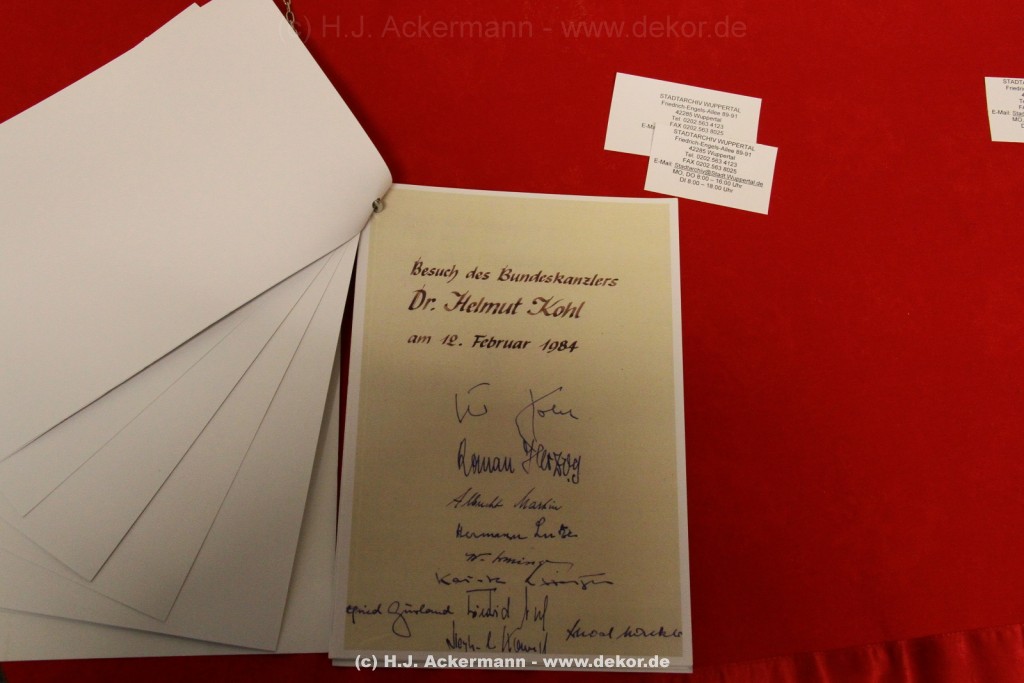 (c) H.J. Ackermann - www.dekor.de
STADTARCHIV WUPPERTAL
Friedrich-Engels-Allee 89-91
42285 Wuppertal
Tel. 0202 563 4123
FAX 0202 563 8025
E-Mail
STADTARCHIV WUPPERTAL
Friedrich-Engels-Allee 89-91
42285 Wuppertal
Tel. 0202 563 4123
FAX 0202 563 8025
E-Mail: Stadtarchiv@Stadt.Wuppertal.de
MO, DO 8:00 – 16:00 Uhr
DI 8:00 – 18:00 Uhr
STADTARCH
Friedrich
E-Mail: Stadt
MO,
Besuch des Bundeskanzlers
Dr. Helmut Kohl
am 12. Februar 1984
Roman Herzog
Albrecht Martin
Hermann
(c) H.J. Ackermann - www.dekor.de